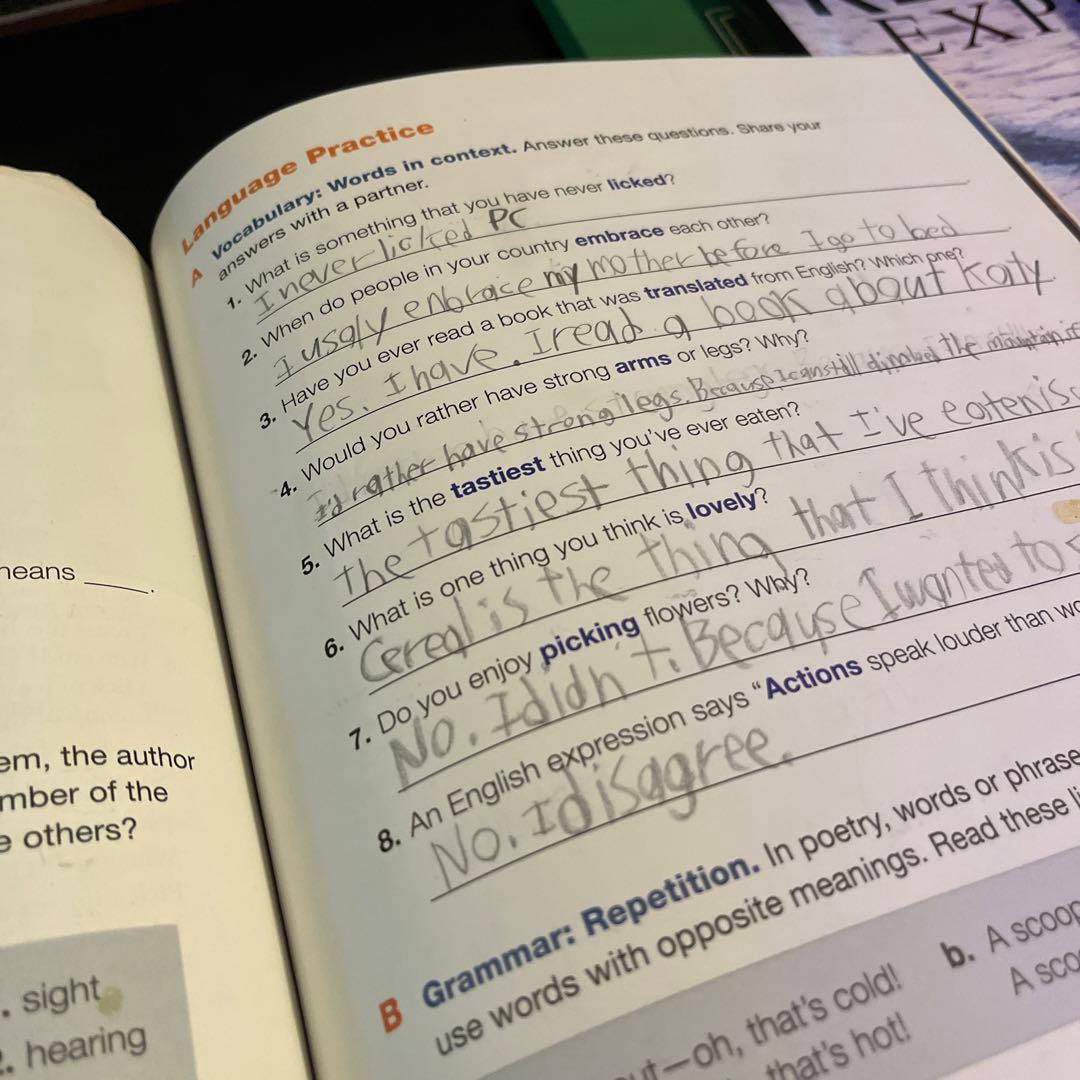 EXP
Language Practice
A Vocabulary: Words in context. Answer these questions. Share your
answers with a partner.
1. What is something that you have never licked?
I never licked PC
2. When do people in your country embrace each other?
I usaly enbrace my mother before I go to bed
3. Have you ever read a book that was translated from English? Which one?
Yes. I have. I read a book about Katy.
4. Would you rather have strong arms or legs? Why?
I'd rather have strong legs. Because I can still climbed the mountain
5. What is the tastiest thing you've ever eaten?
The tastiest thing that I've eaten is
6. What is one thing you think is lovely?
Cereal is the thing that I think is
7. Do you enjoy picking flowers? Why?
No. I didn't. Because I wanted to
8. An English expression says "Actions speak louder than wo
No. I disagree.
B Grammar: Repetition. In poetry, words or phrase
use words with opposite meanings. Read these li
ut—oh, that's cold!
that's hot!
b. A scoop
A scoo
neans ____.
em, the author
mber of the
e others?
. sight
. hearing